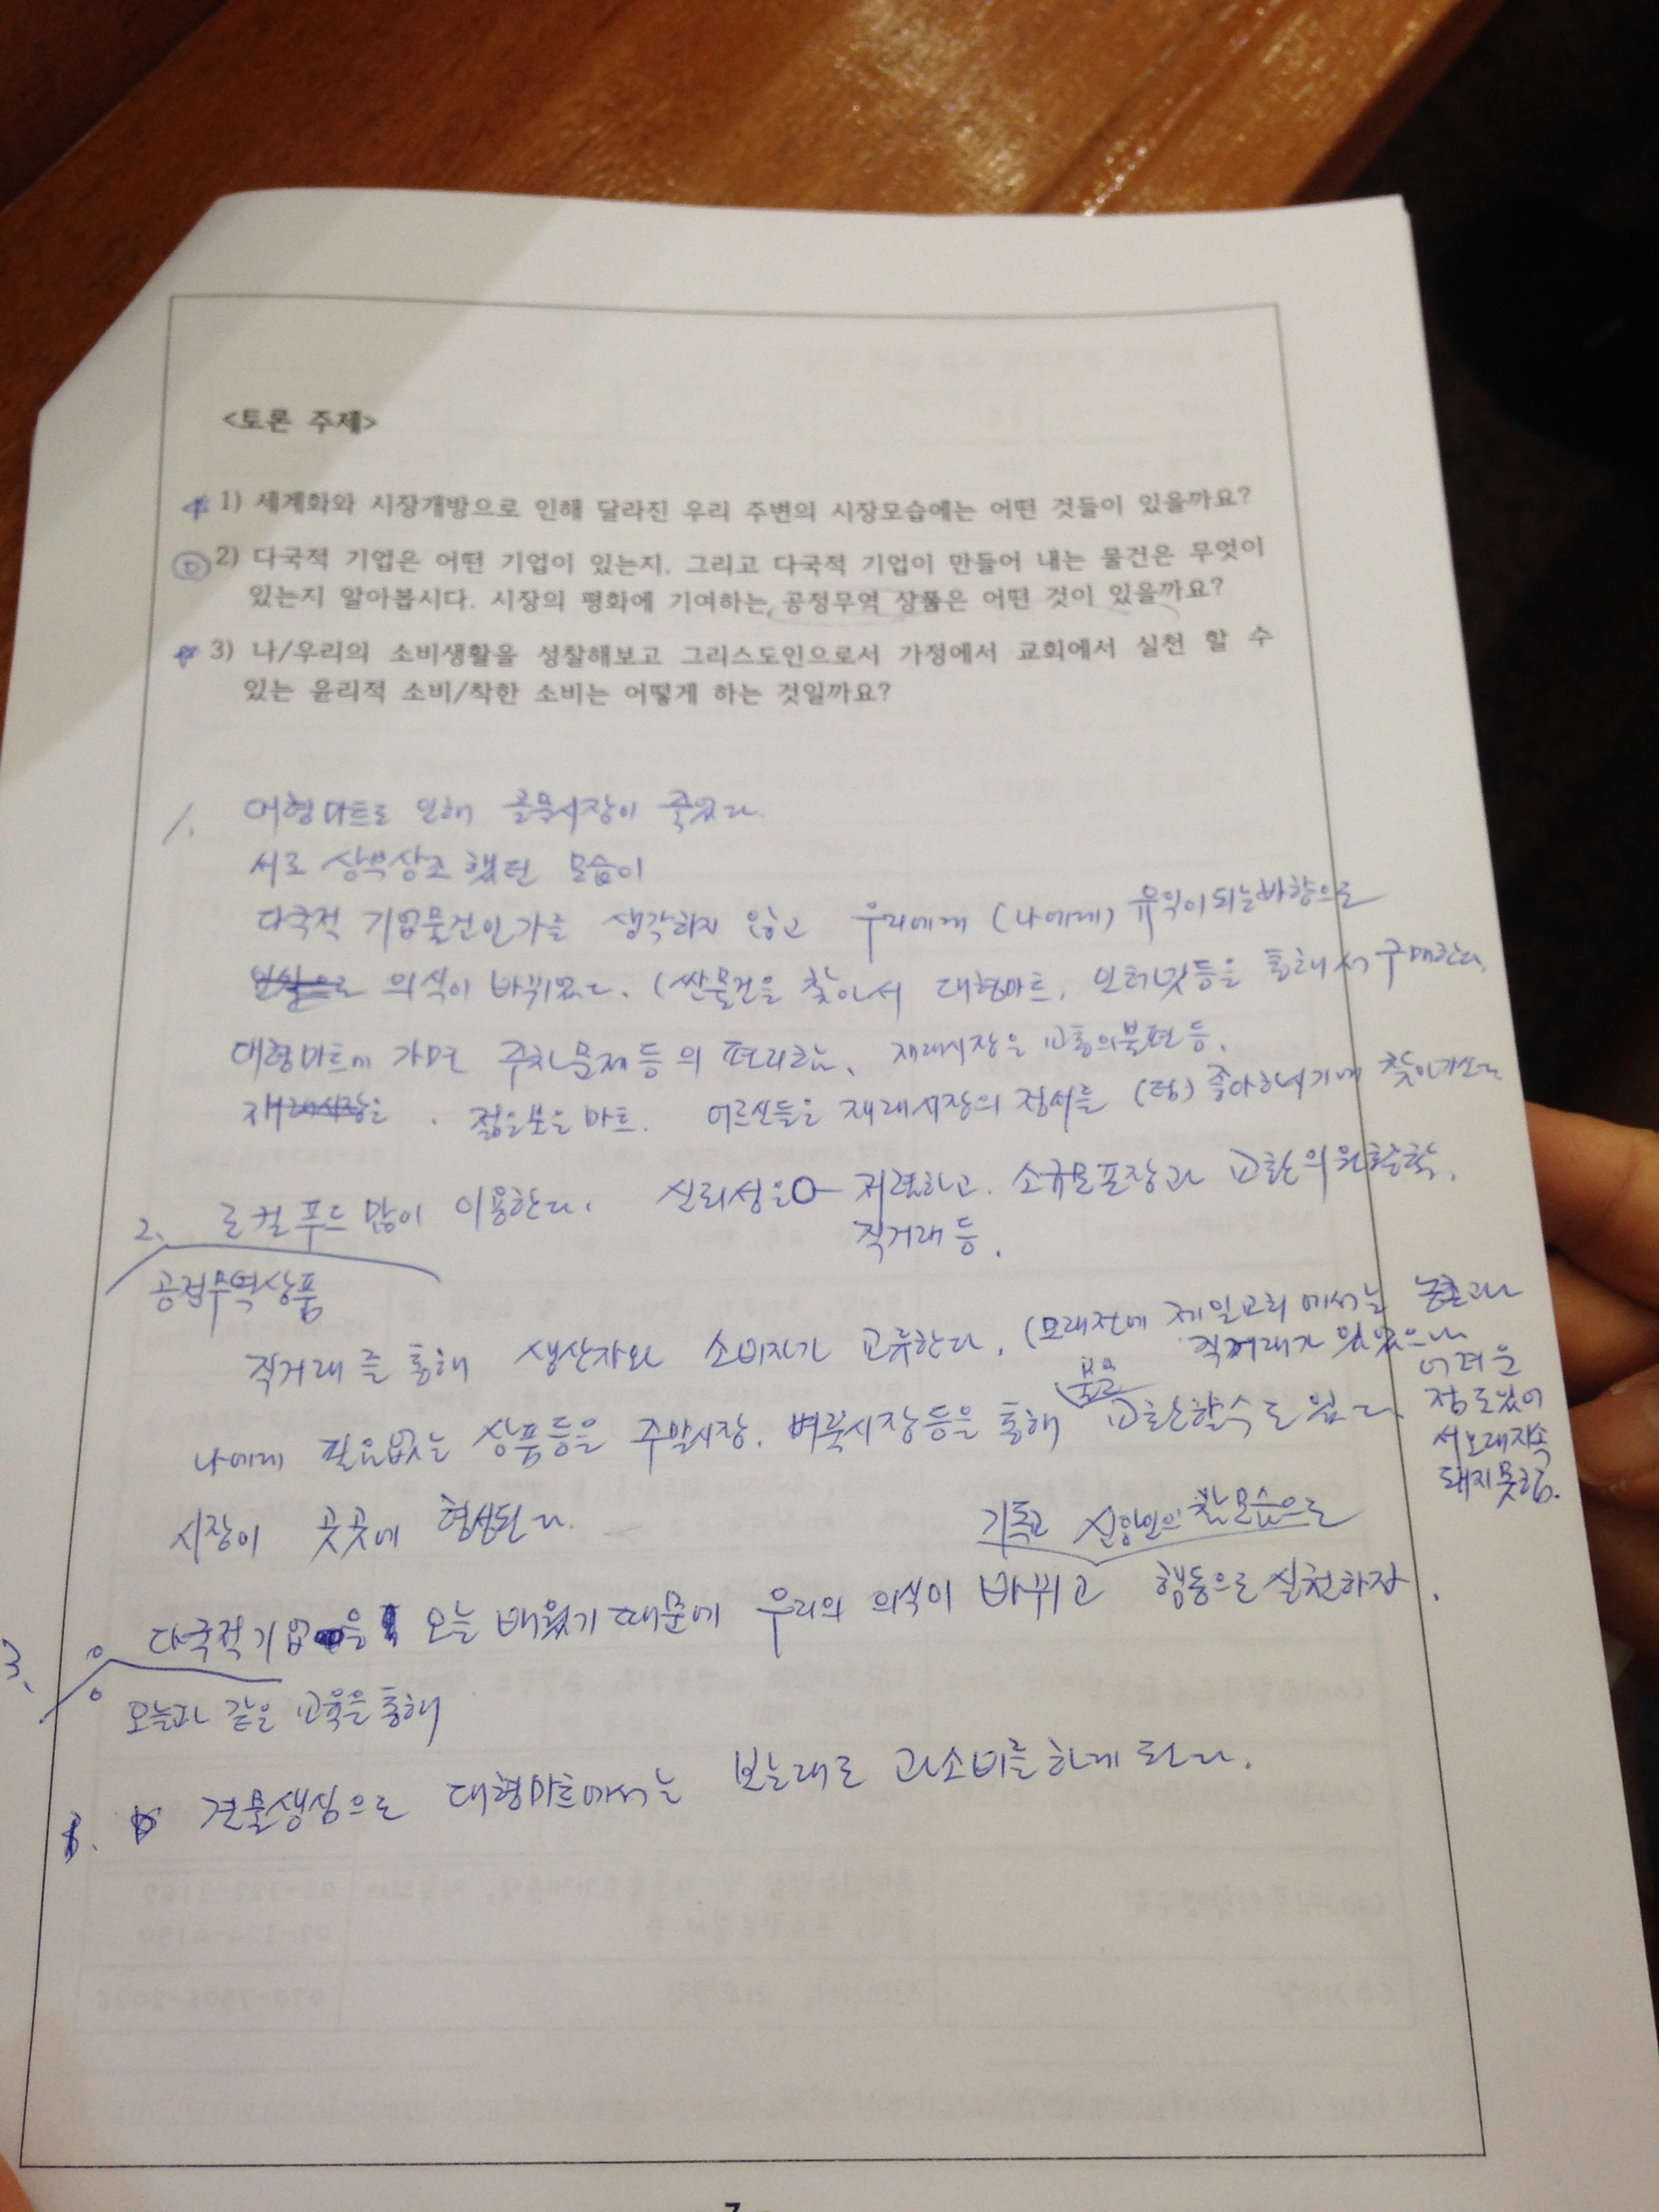 <토론 주제>
1) 세계화와 시장개방으로 인해 달라진 우리 주변의 시장모습에는 어떤 것들이 있을까요?
2) 다국적 기업은 어떤 기업이 있는지. 그리고 다국적 기업이 만들어 내는 물건은 무엇이
있는지 알아봅시다. 시장의 평화에 기여하는 공정무역 상품은 어떤 것이 있을까요?
3) 나/우리의 소비생활을 성찰해보고 그리스도인으로서 가정에서 교회에서 실천 할 수
있는 윤리적 소비/착한 소비는 어떻게 하는 것일까요?
1. 대형마트로 인해 골목시장이 죽었다.
서로 상부상조 했던 모습이
다국적 기업물건인가를 생각하지 않고 우리에게 (나에게) 유익이 되는 방향으로
의식이 바뀌었다. (싼물건을 찾아서 대형마트, 인터넷등을 통해서 구매한다.
대형마트에 가면 주차문제등의 편리함. 재래시장은 교통의불편 등.
재래시장은 . 젊은분은 마트. 어르신들은 재래시장의 정서를 (덤) 좋아하시기에 찾아가신다
2. 로컬푸드 많이 이용한다. 신뢰성은 저렴하고. 소규모포장과 교환의 원활함.
직거래 등.
공정무역상품
직거래를 통해 생산자와 소비자가 교류한다. (오래전에 제일교회에서는 농촌과
직거래가 있었으나
어려운
점도있어
서 오래지속
돼지못함.
나에게 필요없는 상품등을 주말시장, 벼룩시장등을 통해 교환할수도 있다.
시장이 곳곳에 형성된다.
기독교 신앙인의 참모습으로
3. 다국적기업을 오늘 배웠기 때문에 우리의 의식이 바뀌고 행동으로 실천하자.
오늘과 같은 교육을 통해
1. 견물생심으로 대형마트에서는 보는대로 과소비를 하게 된다.
7